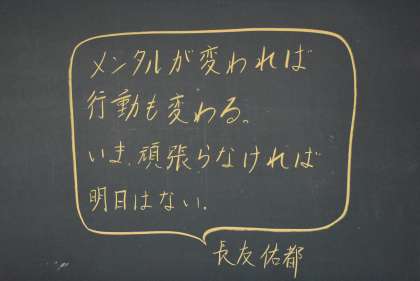 メンタルが変われば
行動も変わる。
いま、頑張らなければ
明日はない。
長友佑都